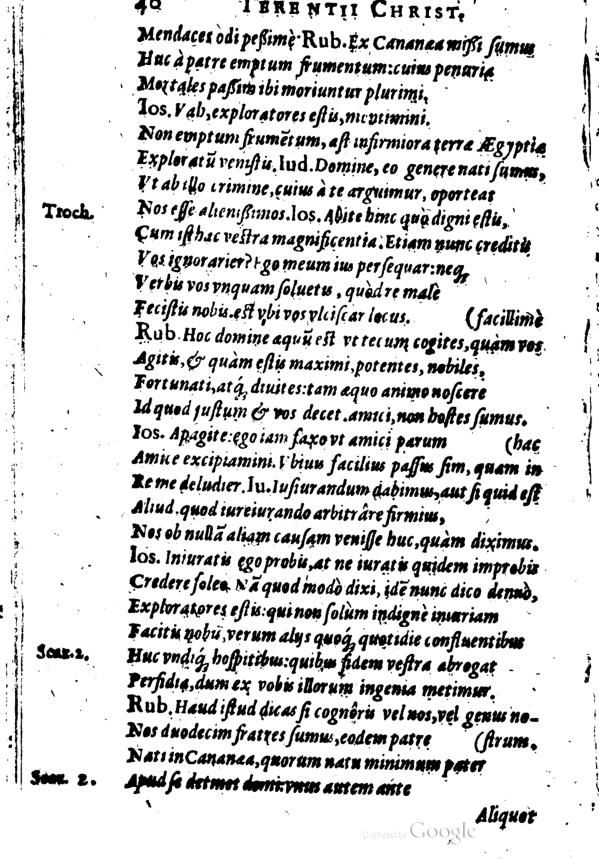 40 TERENTII CHRIST.
Mendaces òdi peßimè Rub. Ex Cananæa mißi sumus
Huc à patre emptum frumentum: cuius penuria
Mortales passim ibi moriuntur plurimi.
Ios. Vah, exploratores estis, mentimini.
Non emptum frumẽtum, ast infirmiora terræ Ægyptiæ
Exploratũ venistis. Iud. Domine, eo genere nati sumus,
Vt ab illo crimine, cuius à te arguimur, oporteat
Troch. Nos esse alienißimos. Ios. Abite hinc quò digni estis,
Cum isthac vestra magnificentia. Etiam nunc creditis
Vos ignorarier? Ego meum ius persequar: neq;
Verbis vos vnquam soluetis, quòd re malè
Fecistis nobis. est vbi vos vlciscar locus. (facillimè
Rub. Hoc domine æquũ est vt tecum cogites, quàm vos
Agitis, & quàm estis maximi, potentes, nobiles,
Fortunati, atq; diuites: tam æquo animo noscere
Id quod iustum & vos decet. amici, non hostes sumus.
Ios. Apagite: ego iam faxo vt amici parum (hac
Amice excipiamini. Vbiuis facilius passus sim, quam in
Re me deludier. Iu. Iusiurandum dabimus, aut si quid est
Aliud, quod iureiurando arbitrâre firmius,
Nos ob nullã aliam causam venisse huc, quàm diximus.
Ios. Iniuratis ego probis, at ne iuratis quidem improbis
Credere soleo. Nã quod modò dixi, idẽ nunc dico denuò,
Exploratores estis: qui non solum indignè iniuriam
Facitis nobis, verum alijs quoq; quotidie confluentibus
Scaz. 2. Huc vndiq; hospitibus: quibus fidem vestra abrogat
Perfidia, dum ex vobis illorum ingenia metimur.
Rub. Haud istud dicas si cognôris vel nos, vel genus no-
Nos duodecim fratres sumus, eodem patre (strum.
Nati in Cananæa, quorum natu minimum pater
Senar. 2. Apud se detinet domi. vnus autem ante
Aliquot
Digitized by Google